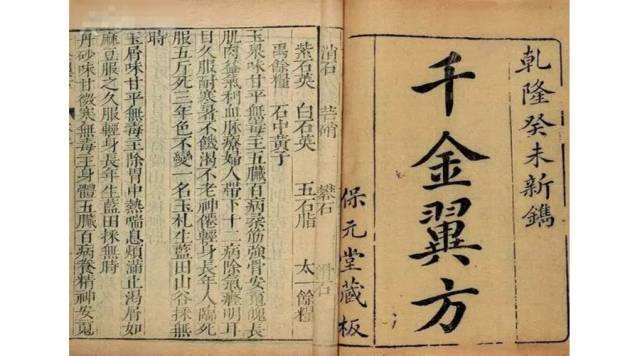 乾隆癸未新鐫
千金翼方
保元堂藏板
消石 礬石 滑石
紫石英 白石英 五石脂 太一餘糧
禹餘糧 石中黃子
玉泉味甘平無毒主五臟百病柔筋強骨安魂魄長
肌肉益氣利血脉療婦人帶下十二病除氣癃明耳
目久服耐寒暑不饑渴不老神僊輕身長年人臨死
服五斤死三年色不變一名玉札生藍田山谷採無
時
玉屑味甘平無毒主除胃中熱喘息煩滿止渴屑如
麻豆服之久服輕身長年生藍田採無時
丹砂味甘微寒無毒主身體五臟百病養精神安魂